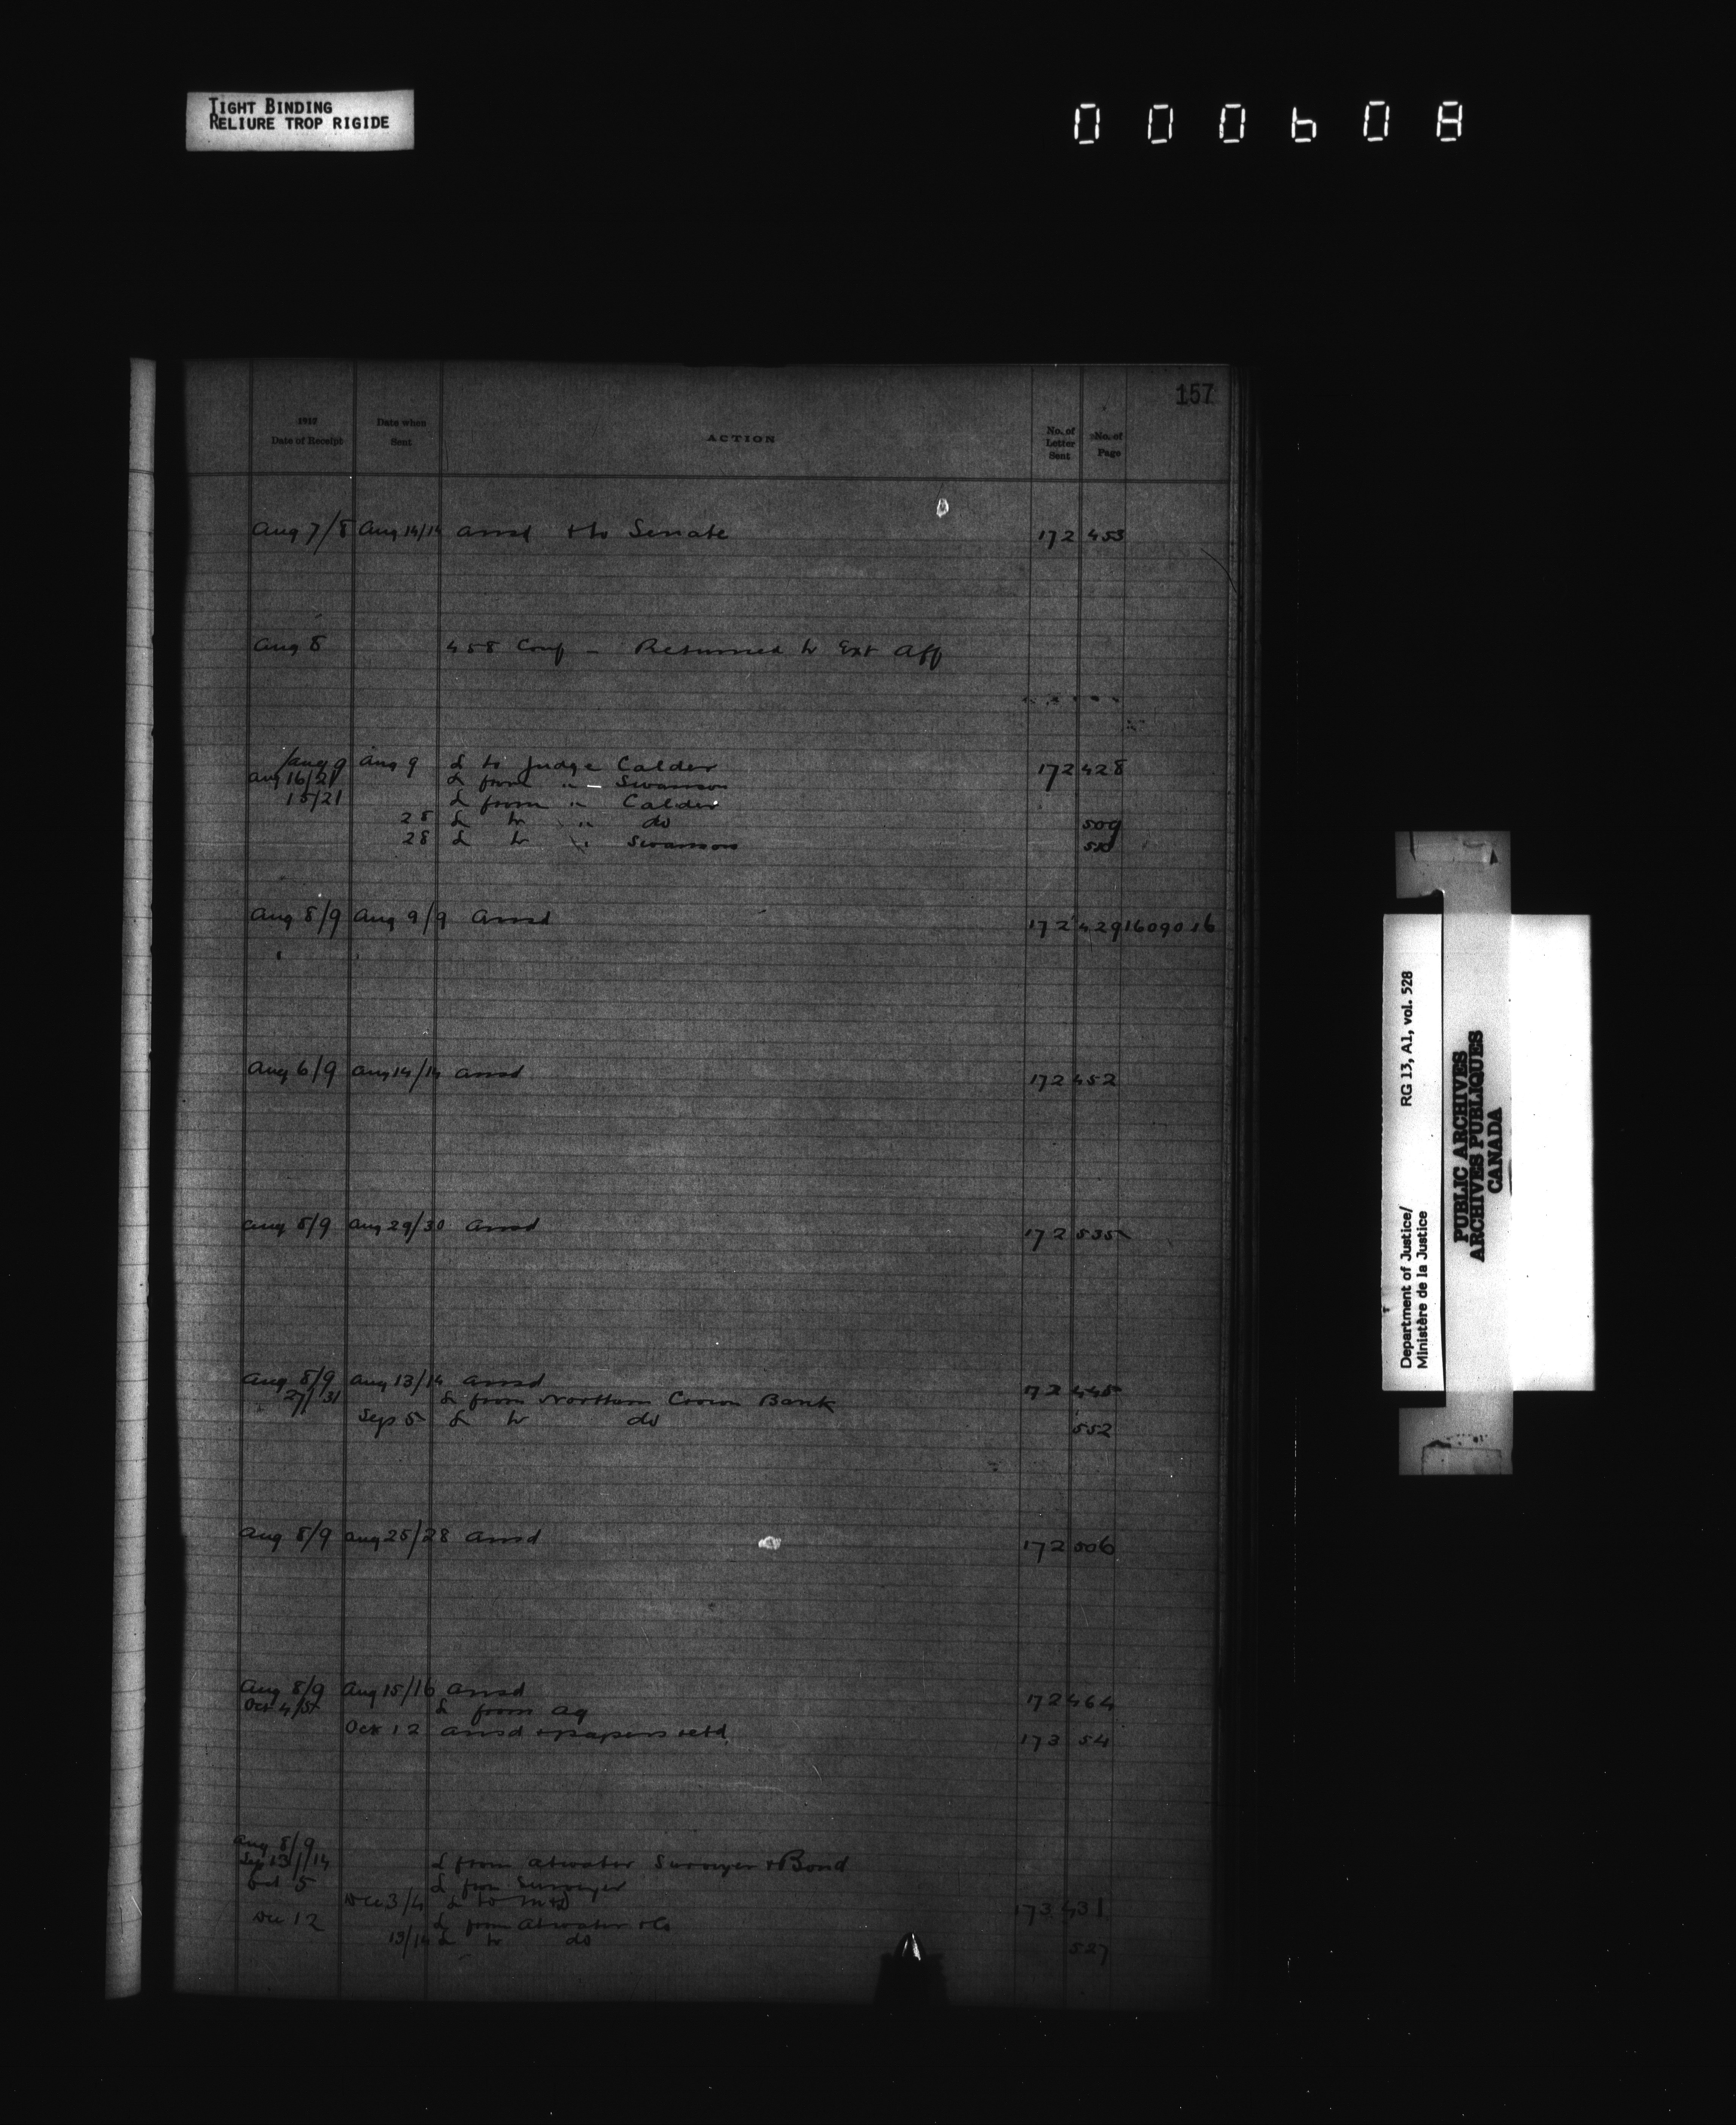 TIGHT BINDING
RELIURE TROP RIGIDE
000608
157
Date of Receipt Date when Sent ACTION No. of Letter Sent No. of Page
Aug 7/8 Aug 14/14 ansd + to Senate 172 453
Aug 8 458 Conf – Returned to Ext Aff
Aug 9 Aug 9 L to Judge Calder 172 428
Aug 16/21 L from " Swanson
15/21 L from " Calder
28 L to " do 509
28 L to " Swanson 510
Aug 8/9 Aug 9/9 ansd 172 429 1609016
Aug 6/9 Aug 14/14 ansd 172 452
Aug 8/9 Aug 29/30 ansd 172 535
Aug 8/9 Aug 13/14 ansd 172 445
27/31 L from Northern Crown Bank
Sep 5 L to do 552
Aug 8/9 Aug 25/28 ansd 172 506
Aug 8/9 Aug 15/16 ansd 172 464
Oct 4/5 L from Ag
Oct 12 ansd + papers retd 173 54
Aug 8/9
Sep 13/14 L from Atwater Surveyer + Bond
Oct 5 L from Surveyer
Dec 3/4 L to M+D 173 431
Dec 12 L from Atwater + Co
13/14 L to do 527
Department of Justice/ RG 13, A1, vol. 528
Ministère de la Justice
PUBLIC ARCHIVES
ARCHIVES PUBLIQUES
CANADA